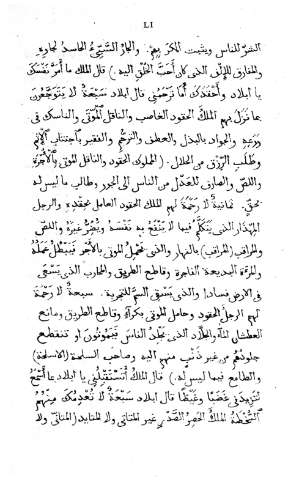 LI
الشرّ للناس ويثبت المكر بهم، والجار السيّئ الحاسد لجاره
والمفارق للإلف الذى كان أحبّ الخلق اليه، قال الملك ما أمرّ نفسك
يا ابلاد وأفقدك أما ترحمنى قال ابلاد سبعة لا يتوجّعون
بما نزل بهم الملك الغاصب والناقل الموتى والناسك فى
ورعه والجواد بالبذل والعطف والترحّم والفقير باجتناب الإثم
وطلب الرزق من الحلال، (المملوك الحقود والناقل الموتى بالأجرة
واللصّ والصارف للعدل من الناس الى الجور وطالب ما ليس له
بحقّ، ثمانية لا رحمة لهم الملك الحقود العامل بحقده والرجل
المهذار الذى يتكلّم فيما لا ينتفع به نفسه ويضرّ غيره واللصّ
والمراقب (المراقب) بالنهار والذى يحمل الموتى بالأجر فيبطل عمله
والمرءة البديعة الفاجرة وقاطع الطريق والمحارب الذى يسعى
فى الارض فسادا والذى يسقى السمّ للتجربة، سبعة لا رحمة
لهم الرجل الحقود وحامل الموتى بكراه وقاطع الطريق ومانع
العطشان الماء والجلّاد الذى يجلد الناس فيموتون او تنقطع
جلودهم من غير ذنب منهم اليه وصاحب السلحة (الاسلحة)
والطامع فيما ليس له) قال الملك أتستقبلنى يا ابلاد بما أسمع
لتزيدنى غضبا وغيظا قال ابلاد سبعة لا تعدمك منهم
السخطة الملك الحصر الصدر غير المتانى ولا المتايد (المتانى ولا